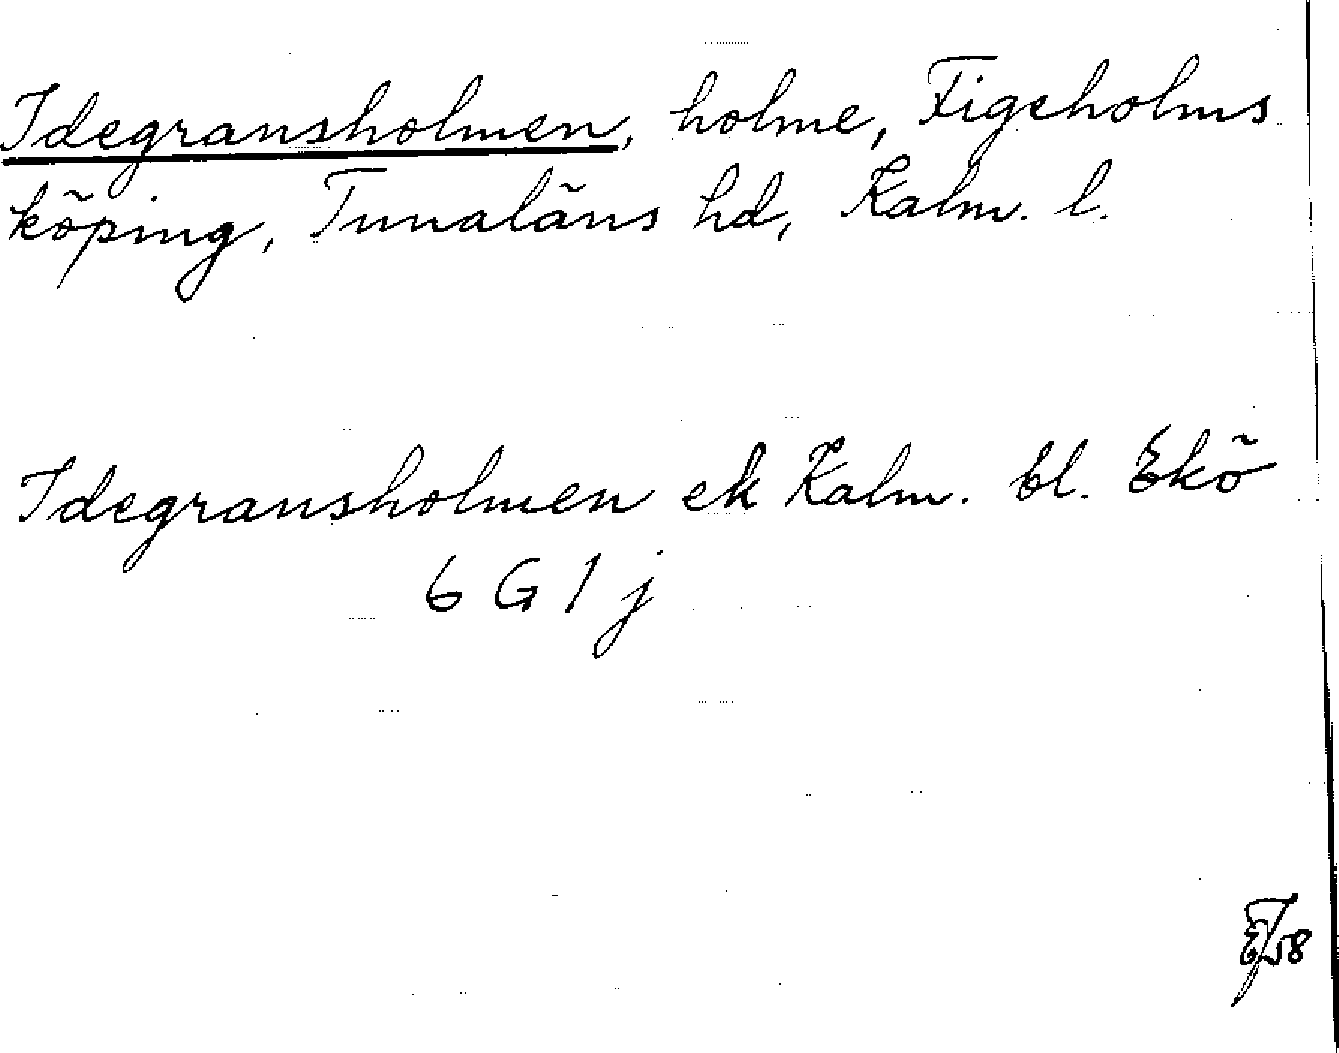 Idegransholmen, holme, Figeholms
köping, Tunaläns hd, Kalm. l.
Idegransholmen ek Kalm. bl. Ekö
6 G 1 j